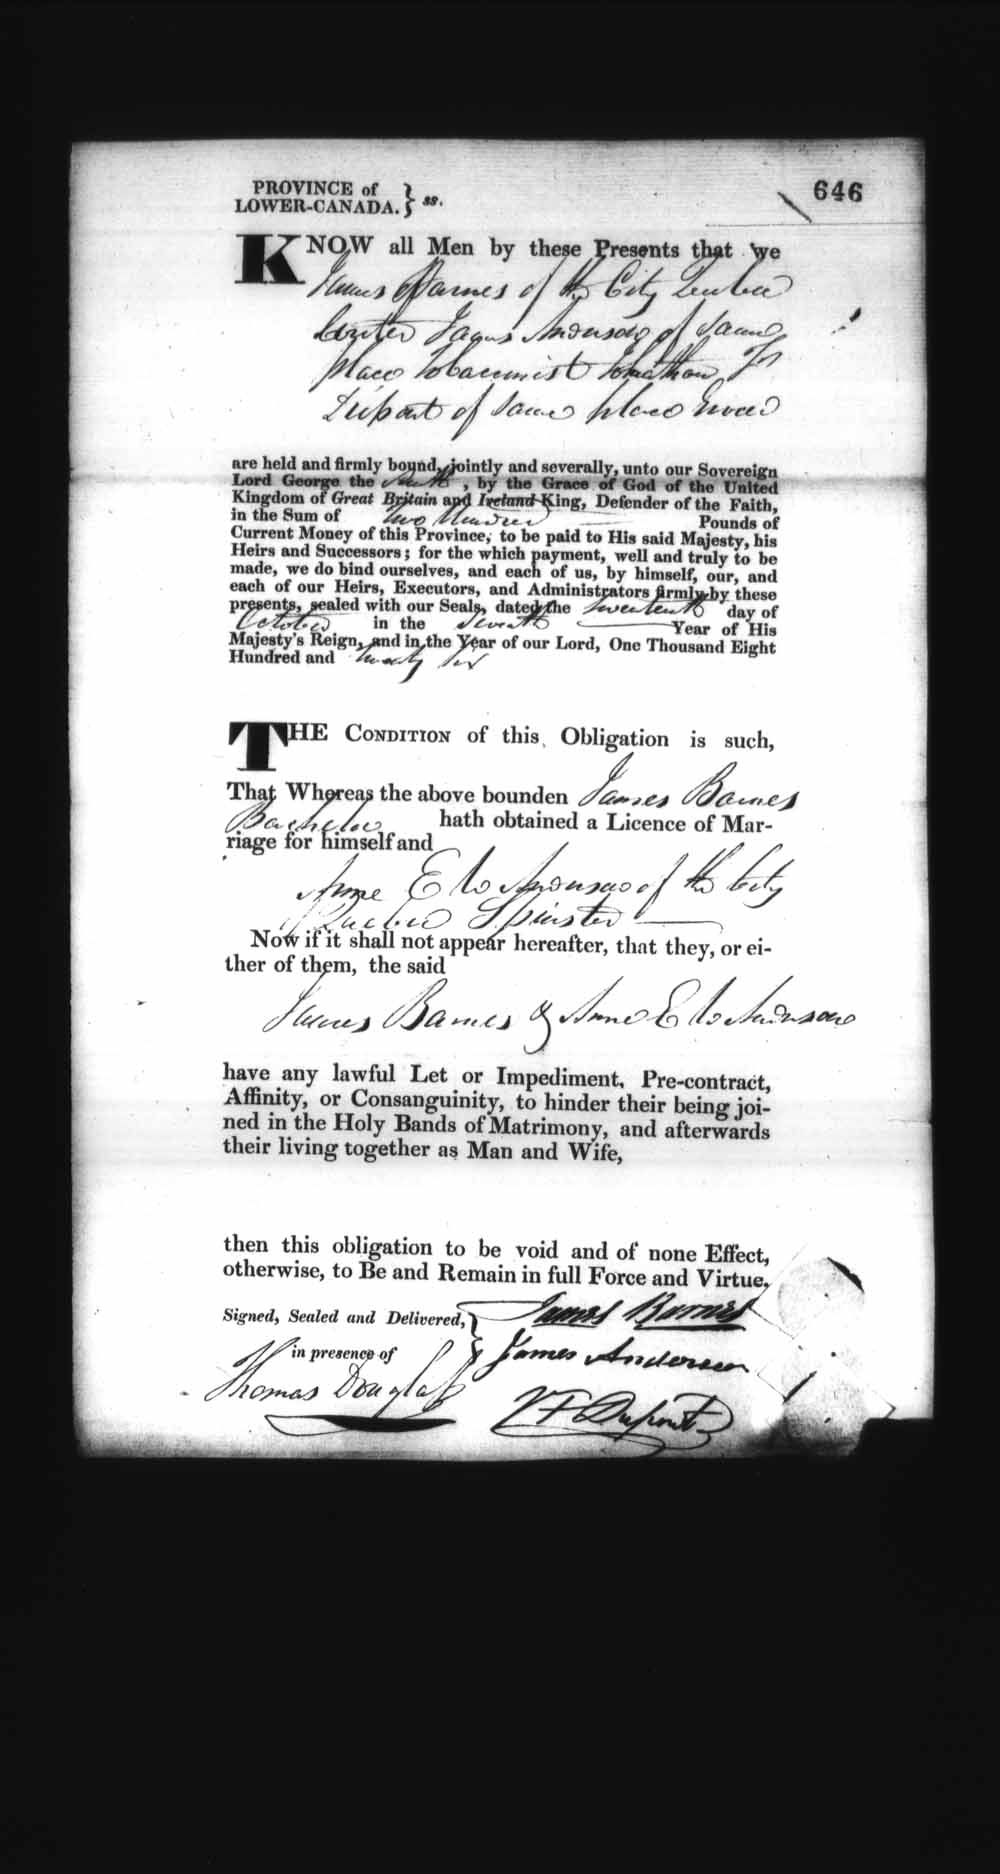 PROVINCE of
LOWER-CANADA. } ss.
646
KNOW all Men by these Presents that we
James Barnes of the City Quebec
James Anderson of same
place Tobacconist Jonathan F
Dupont of same place
are held and firmly bound, jointly and severally, unto our Sovereign
Lord George the fourth, by the Grace of God of the United
Kingdom of Great Britain and Ireland King, Defender of the Faith,
in the Sum of two Hundred Pounds of
Current Money of this Province, to be paid to His said Majesty, his
Heirs and Successors; for the which payment, well and truly to be
made, we do bind ourselves, and each of us, by himself, our, and
each of our Heirs, Executors, and Administrators firmly by these
presents, sealed with our Seals, dated the seventeenth day of
October in the seventh Year of His
Majesty's Reign, and in the Year of our Lord, One Thousand Eight
Hundred and twenty six
THE CONDITION of this Obligation is such,
That Whereas the above bounden James Barnes
Bachelor hath obtained a Licence of Mar-
riage for himself and
Anne E Anderson of the City
Quebec Spinster
Now if it shall not appear hereafter, that they, or ei-
ther of them, the said
James Barnes & Anne E Anderson
have any lawful Let or Impediment, Pre-contract,
Affinity, or Consanguinity, to hinder their being joi-
ned in the Holy Bands of Matrimony, and afterwards
their living together as Man and Wife,
then this obligation to be void and of none Effect,
otherwise, to Be and Remain in full Force and Virtue.
Signed, Sealed and Delivered, } James Barnes
in presence of James Anderson
Thomas Douglas
F Dupont